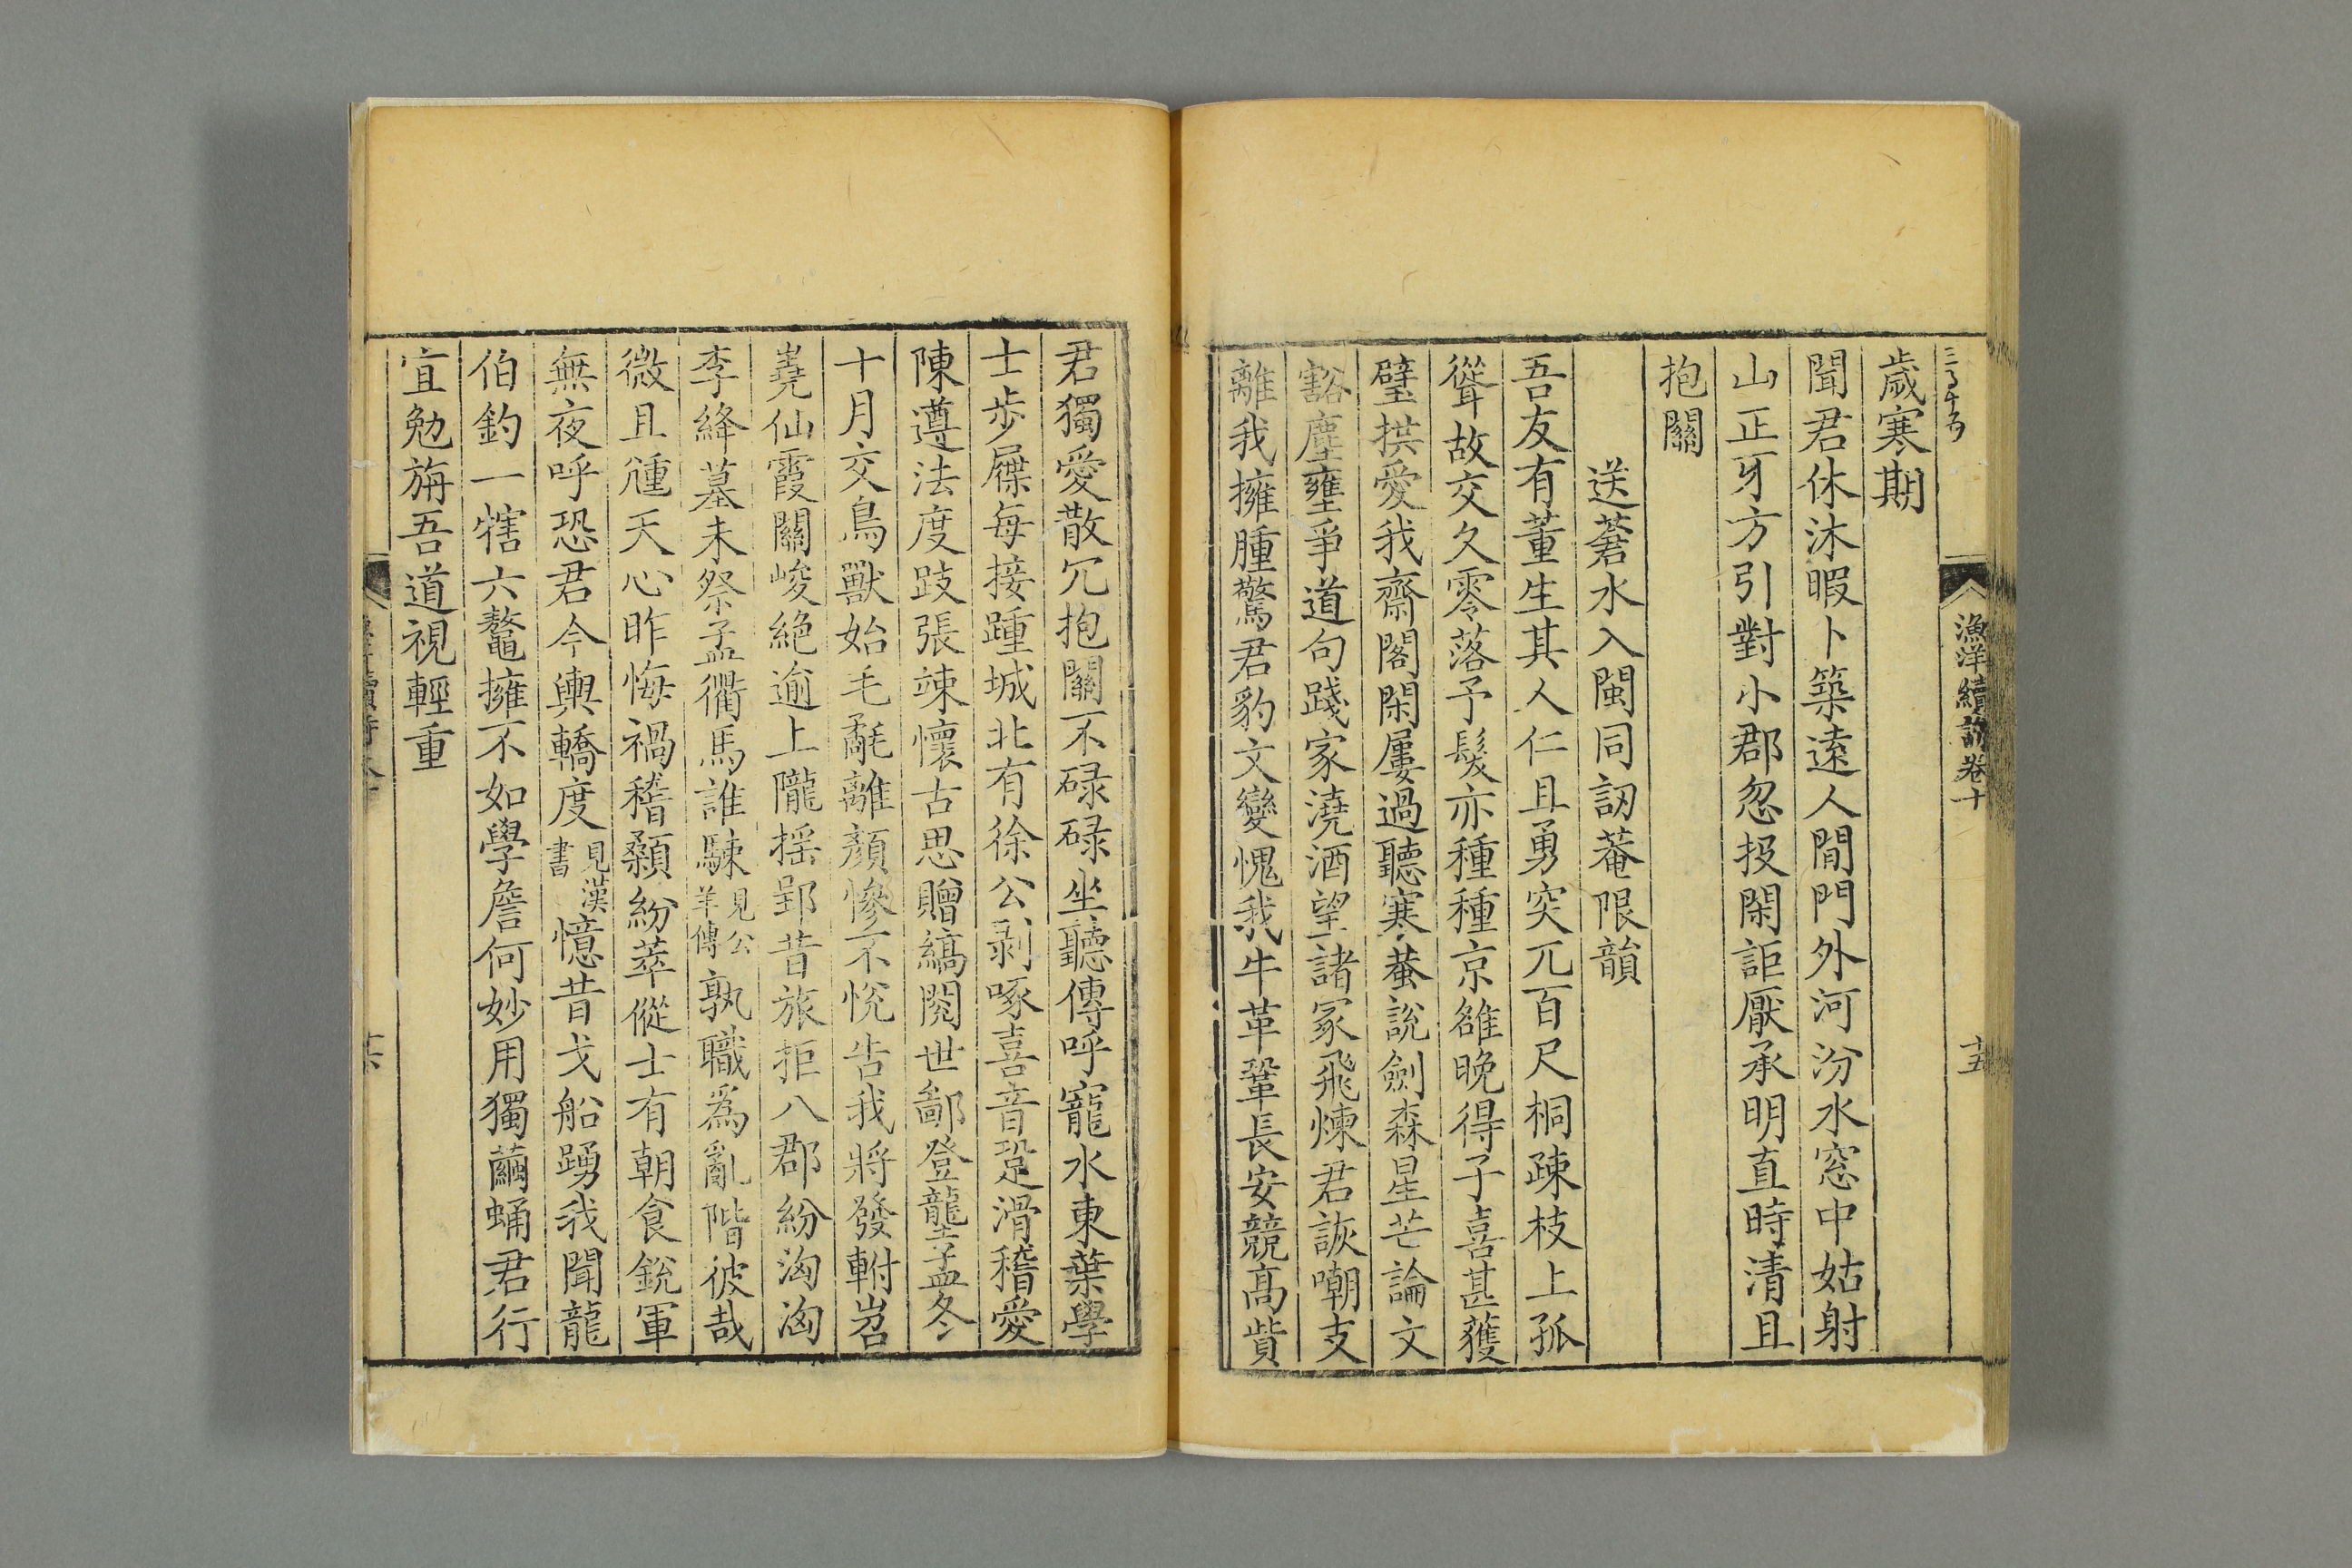 漁洋續詩卷十
十五
歲寒期
聞君休沐暇卜築遠人間門外河汾水窓中姑射
山正牙方引對小郡忽投閑詎厭承明直時清且
抱關
送蒼水入閩同訒菴限韻
吾友有董生其人仁且勇突兀百尺桐疎枝上孤
聳故交久零落予髮亦種種京雒晚得子喜甚獲
璧拱愛我齋閣閑屢過聽寒蛬說劍森星芒論文
豁塵壅爭道句踐家澆酒望諸冢飛煉君詼嘲支
離我擁腫驚君豹文變愧我牛革鞏長安競高貲
君獨愛散冗抱關不碌碌坐聽傳呼寵水東葉學
士步屧每接踵城北有徐公剥啄喜音跫滑稽愛
陳遵法度跂張竦懷古思贈縞閱世鄙登壟孟冬
十月交鳥獸始毛氄離顏慘不悅告我將發軵岧
嶤仙霞關峻絕逾上隴揺郢昔旅拒八郡紛洶洶
李絳墓未祭孟衢馬誰駷見公羊傳孰職爲亂階彼哉
微且尰天心昨悔禍稽顙紛萃從士有朝食銳軍
無夜呼恐君今輿轎度見漢書憶昔戈船踴我聞龍
伯釣一犗六鼇擁不如學詹何妙用獨繭蛹君行
宜勉旃吾道視輕重